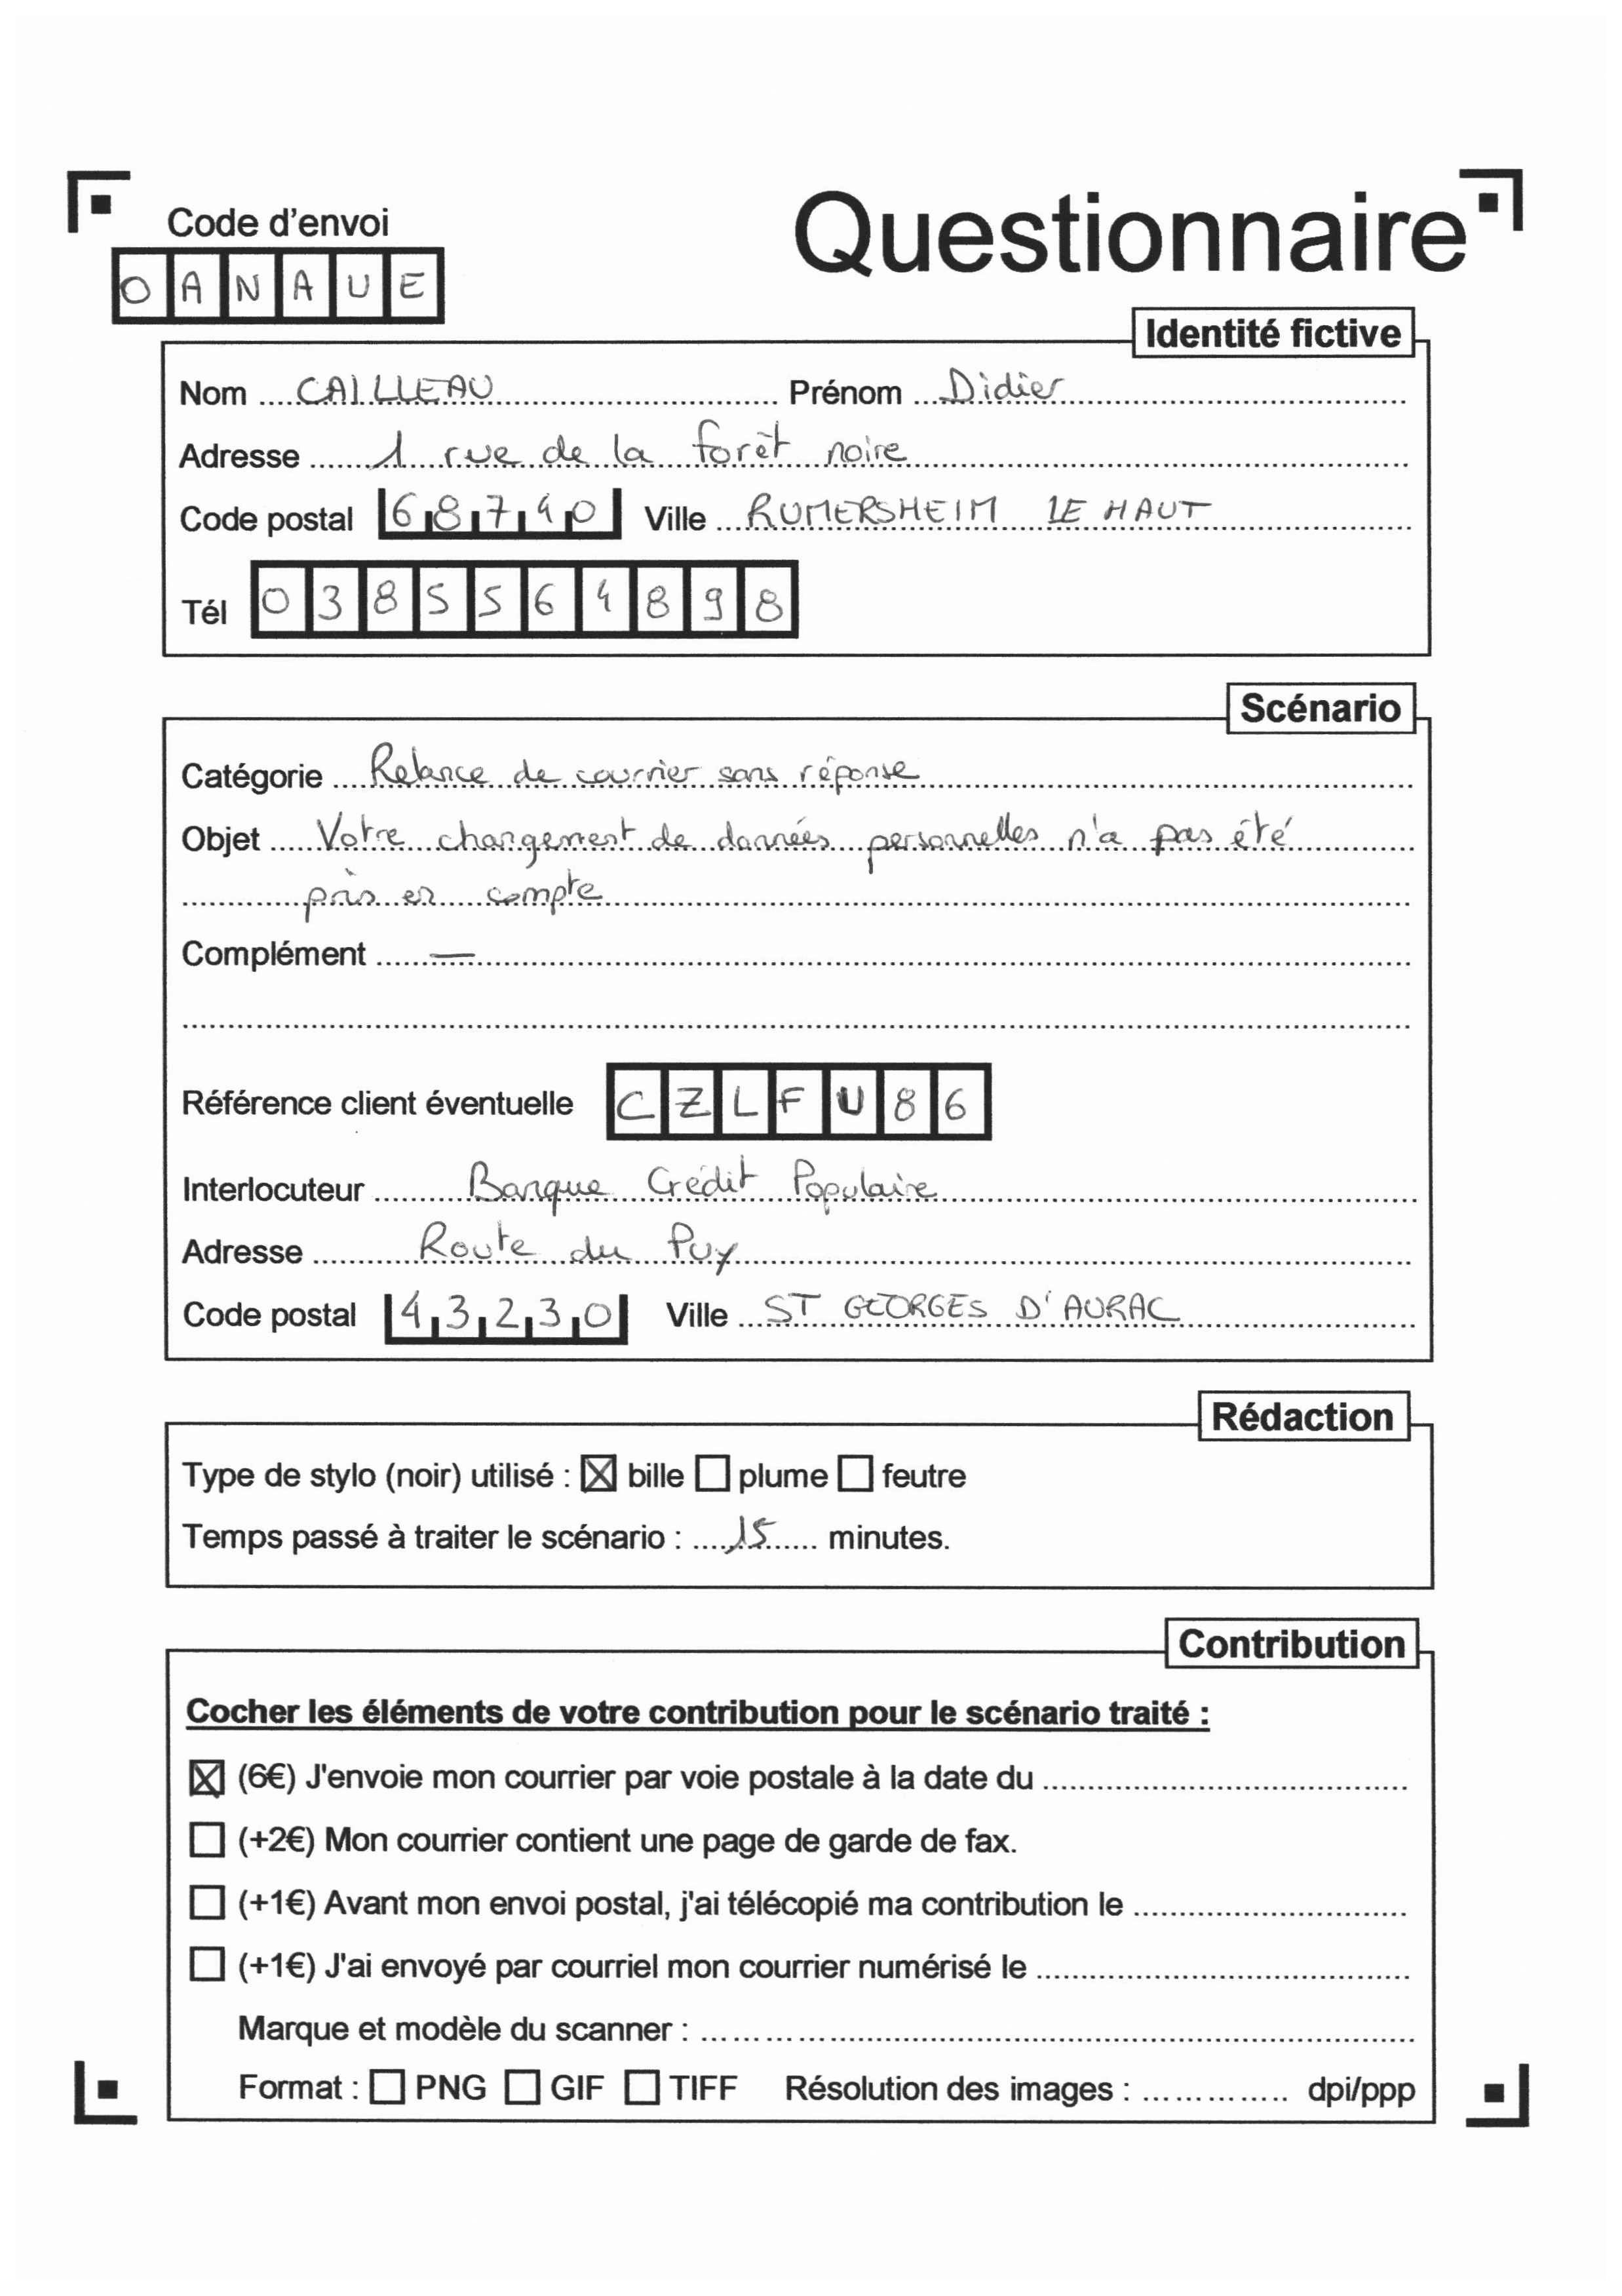 Code d'envoi
Questionnaire
OANAUE
Identité fictive
Nom CAILLEAU Prénom Didier
Adresse 1 rue de la forêt noire
Code postal 68740 Ville RUMERSHEIM LE HAUT
Tél 0385564898
Scénario
Catégorie Relance de courrier sans réponse
Objet Votre changement de données personnelles n'a pas été
pris en compte
Complément —
Référence client éventuelle CZLFU86
Interlocuteur Banque Crédit Populaire
Adresse Route du Puy
Code postal 43230 Ville ST GEORGES D'AURAC
Rédaction
Type de stylo (noir) utilisé : ☒ bille ☐ plume ☐ feutre
Temps passé à traiter le scénario : 15 minutes.
Contribution
Cocher les éléments de votre contribution pour le scénario traité :
☒ (6€) J'envoie mon courrier par voie postale à la date du
☐ (+2€) Mon courrier contient une page de garde de fax.
☐ (+1€) Avant mon envoi postal, j'ai télécopié ma contribution le
☐ (+1€) J'ai envoyé par courriel mon courrier numérisé le
Marque et modèle du scanner :
Format : ☐ PNG ☐ GIF ☐ TIFF Résolution des images : dpi/ppp